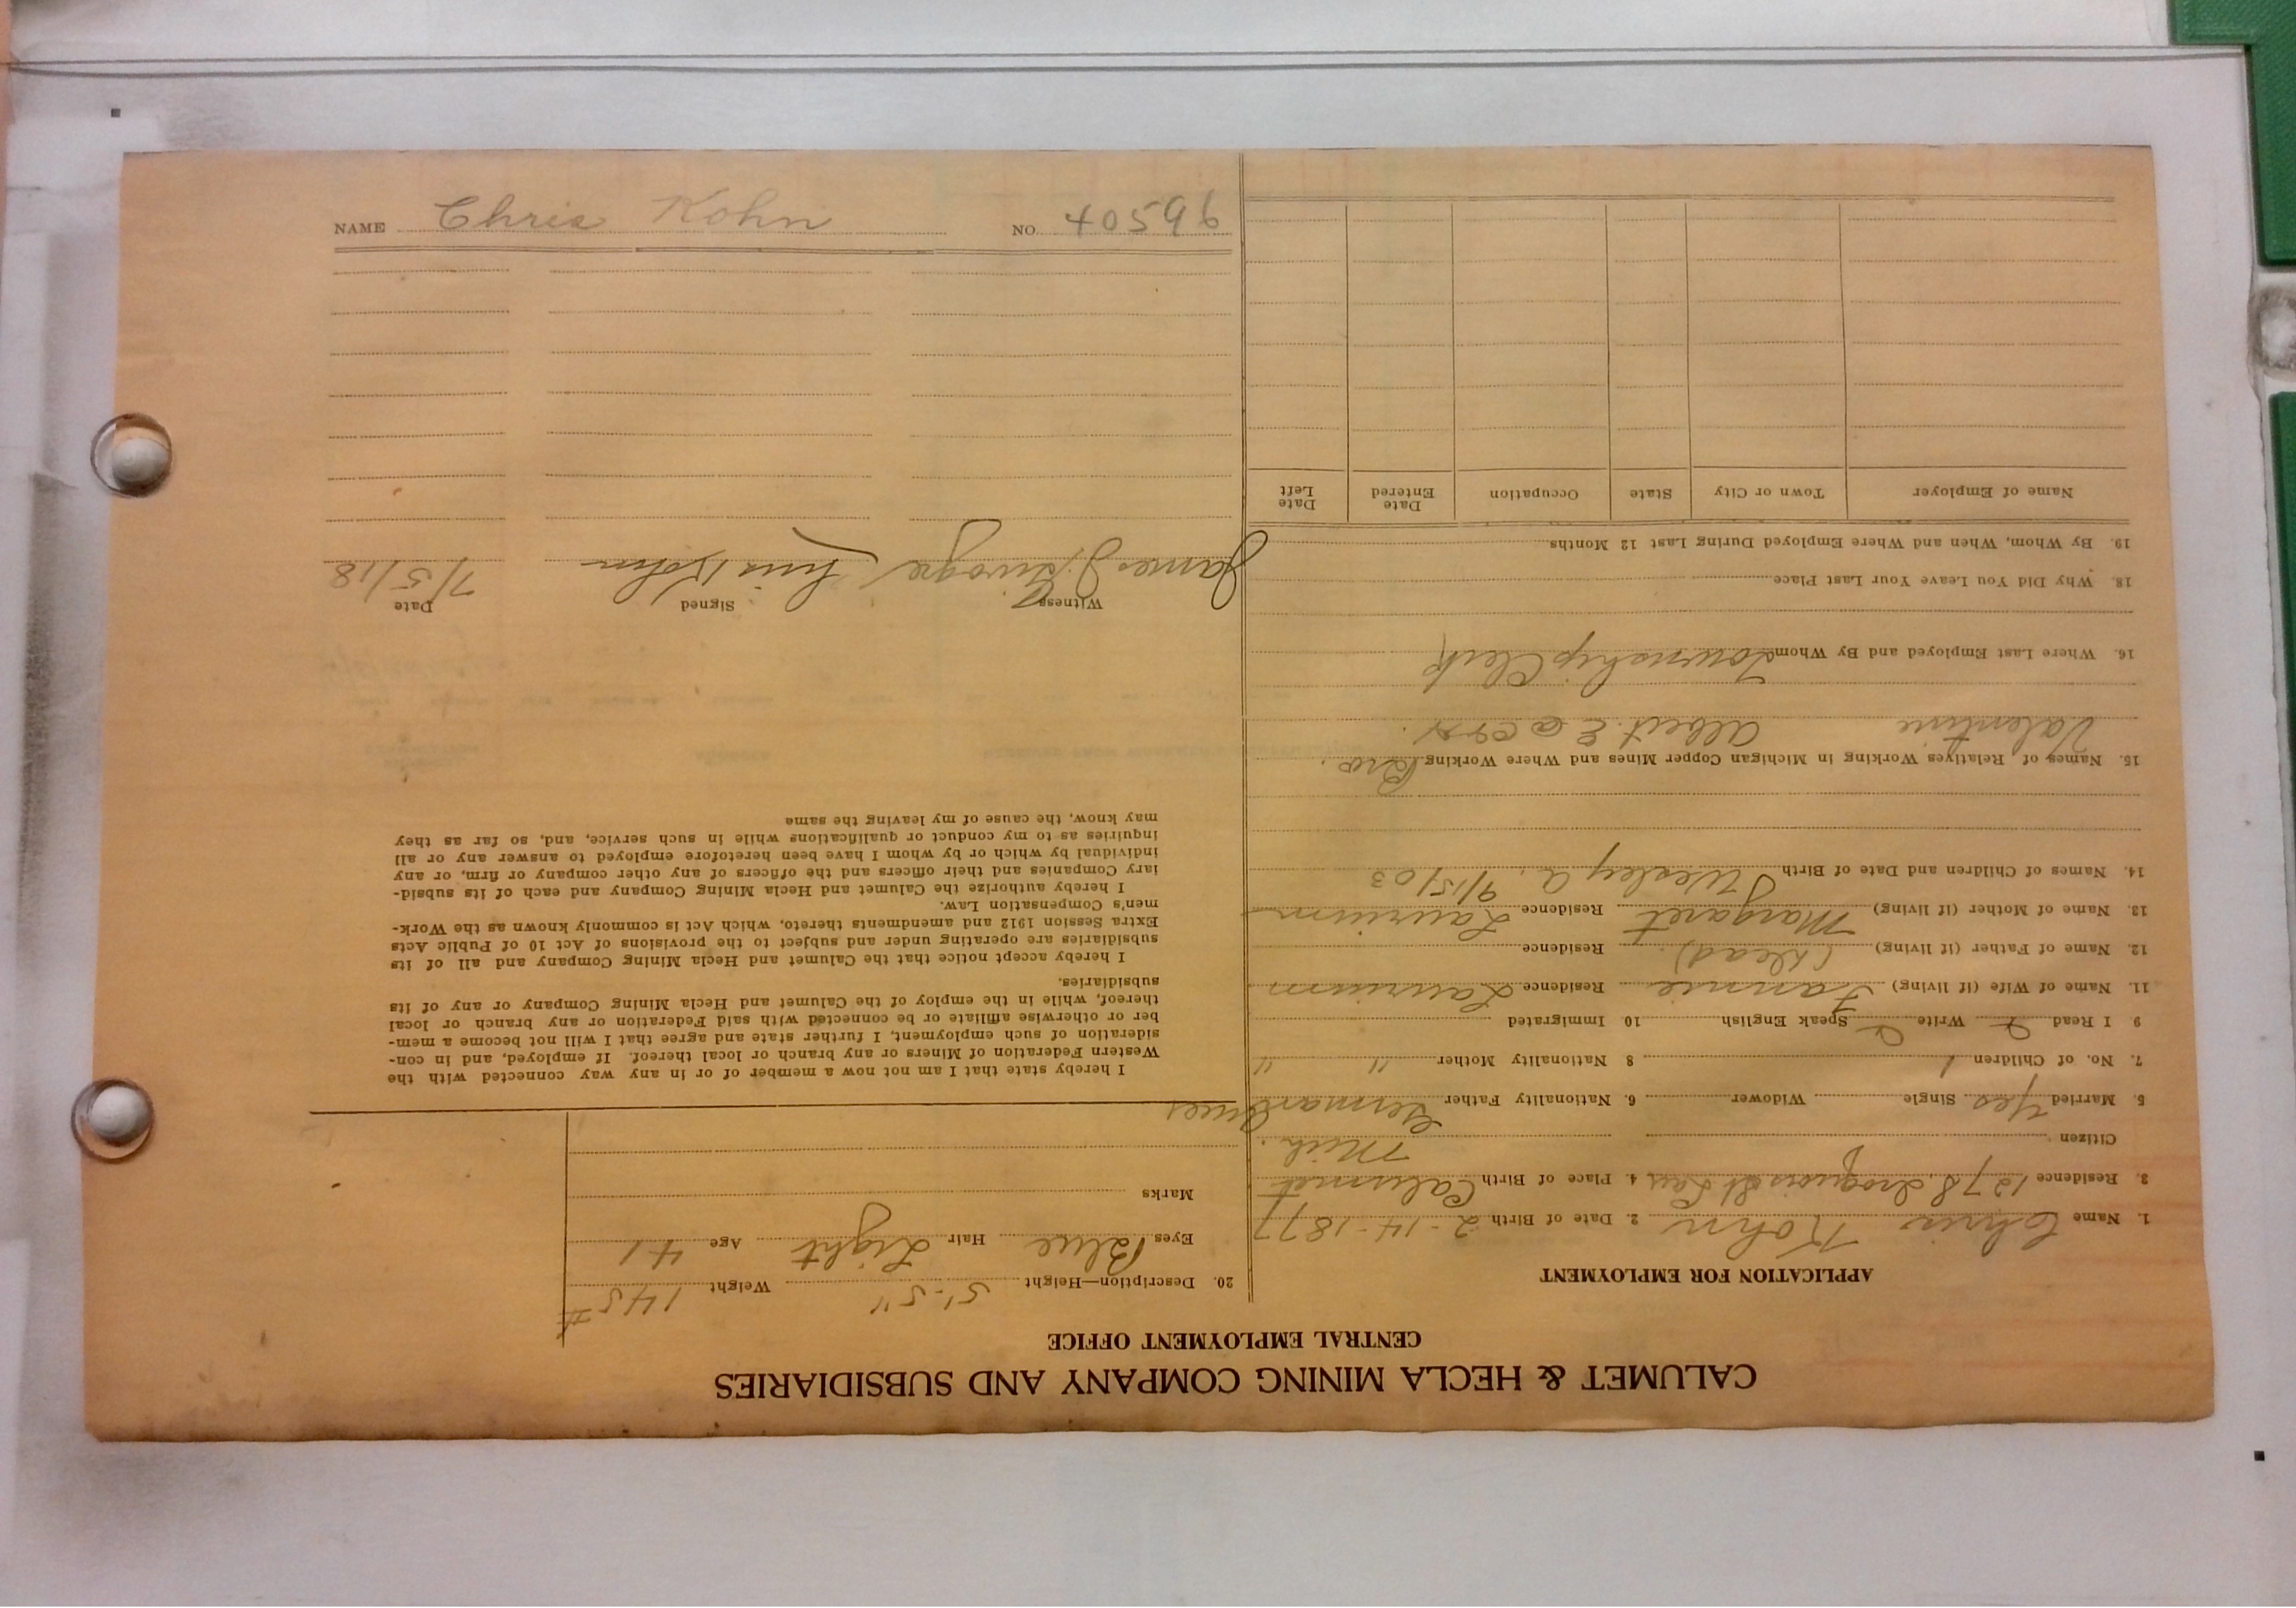 CALUMET & HECLA MINING COMPANY AND SUBSIDIARIES
CENTRAL EMPLOYMENT OFFICE
APPLICATION FOR EMPLOYMENT
1. Name Chris Kohn 2. Date of Birth 2-14-1877
3. Residence 1278 Iroquois St Lau 4. Place of Birth Calumet
Mich.
Citizen
5. Married Yes Single Widower 6. Nationality Father German
7. No. of Children 1 8 Nationality Mother " "
9 I Read Write Speak English 10 Immigrated
11. Name of Wife (if living) Fannie Residence Laurium
12. Name of Father (if living) (Dead). Residence
13. Name of Mother (if living) Margaret Residence Laurium
14. Names of Children and Date of Birth Wesley A. 9/15/03
15. Names of Relatives Working in Michigan Copper Mines and Where Working Bro.
Valentine Albert E @ C&H.
16. Where Last Employed and By Whom Township Clerk
18. Why Did You Leave Your Last Place
19. By Whom, When and Where Employed During Last 12 Months
Name of Employer Town or City State Occupation Date Entered Date Left
20. Description—Height 5'-5" Weight 145#
Eyes Blue Hair Light Age 41
Marks
I hereby state that I am not now a member of or in any way connected with the
Western Federation of Miners or any branch or local thereof. If employed, and in con-
sideration of such employment, I further state and agree that I will not become a mem-
ber or otherwise affiliate or be connected with said Federation or any branch or local
thereof, while in the employ of the Calumet and Hecla Mining Company or any of its
subsidiaries.
I hereby accept notice that the Calumet and Hecla Mining Company and all of its
subsidiaries are operating under and subject to the provisions of Act 10 of Public Acts
Extra Session 1912 and amendments thereto, which Act is commonly known as the Work-
men's Compensation Law.
I hereby authorize the Calumet and Hecla Mining Company and each of its subsid-
iary Companies and their officers and the officers of any other company or firm, or any
individual by which or by whom I have been heretofore employed to answer any or all
inquiries as to my conduct or qualifications while in such service, and, so far as they
may know, the cause of my leaving the same
Witness Signed Date
James Chris Kohn 7/5/18
NAME Chris Kohn NO. 40596